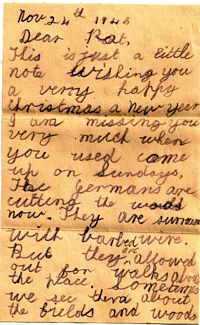 Nov. 24th 1946
Dear Pat,
This is just a little
note wishing you
a verry happy
Christmas a New Year
I am missing you
very much when
you used come
up on Sundays.
The Germans are
cutting the woods
now. They are surroun
with barbed wire.
But they are allowed
out for walks about
the place. Sometimes
we see them about
the fields and woods